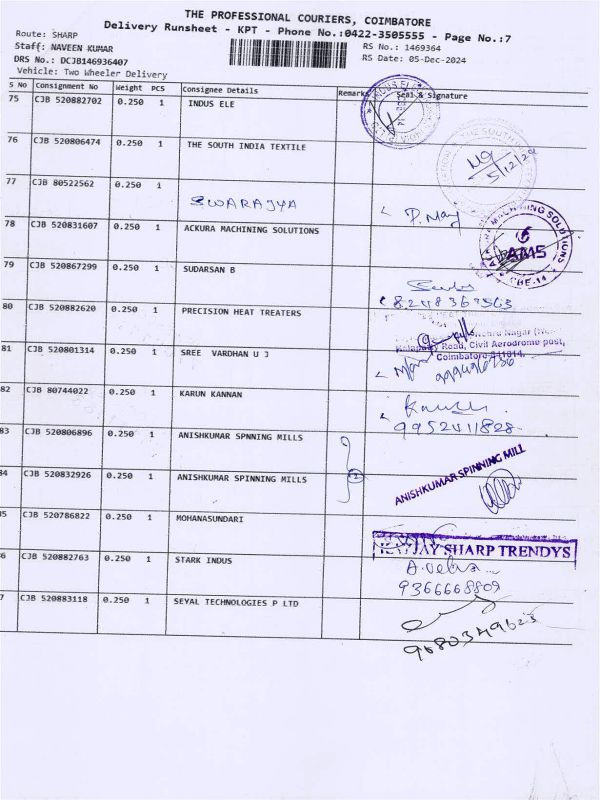 THE PROFESSIONAL COURIERS, COIMBATORE
Delivery Runsheet - KPT - Phone No.:0422-3505555 - Page No.:7
Route: SHARP
Staff: NAVEEN KUMAR
DRS No.: DCJB146936407
Vehicle: Two Wheeler Delivery
RS No.: 1469364
RS Date: 05-Dec-2024
S No Consignment No Weight PCS Consignee Details Remarks Seal & Signature
75 CJB 520882702 0.250 1 INDUS ELE
76 CJB 520806474 0.250 1 THE SOUTH INDIA TEXTILE
5/12/24
77 CJB 80522562 0.250 1 SWARAJYA
P. Mary
78 CJB 520831607 0.250 1 ACKURA MACHINING SOLUTIONS
MACHINING SOLUTIONS
AMS
CBE-14
79 CJB 520867299 0.250 1 SUDARSAN B
80 CJB 520882620 0.250 1 PRECISION HEAT TREATERS
Nehru Nagar
Road, Civil Aerodrome post,
Coimbatore-641014.
81 CJB 520801314 0.250 1 SREE VARDHAN U J
82 CJB 80744022 0.250 1 KARUN KANNAN
9952411828
83 CJB 520806896 0.250 1 ANISHKUMAR SPNNING MILLS
84 CJB 520832926 0.250 1 ANISHKUMAR SPINNING MILLS
2
ANISHKUMAR SPINNING MILL
85 CJB 520786822 0.250 1 MOHANASUNDARI
SHARP TRENDYS
86 CJB 520882763 0.250 1 STARK INDUS
9366668809
87 CJB 520883118 0.250 1 SEYAL TECHNOLOGIES P LTD